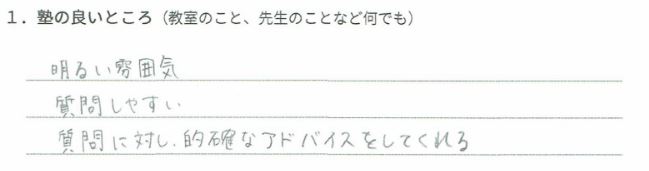 1. 塾の良いところ（教室のこと、先生のことなど何でも）
明るい雰囲気
質問しやすい
質問に対し、的確なアドバイスをしてくれる